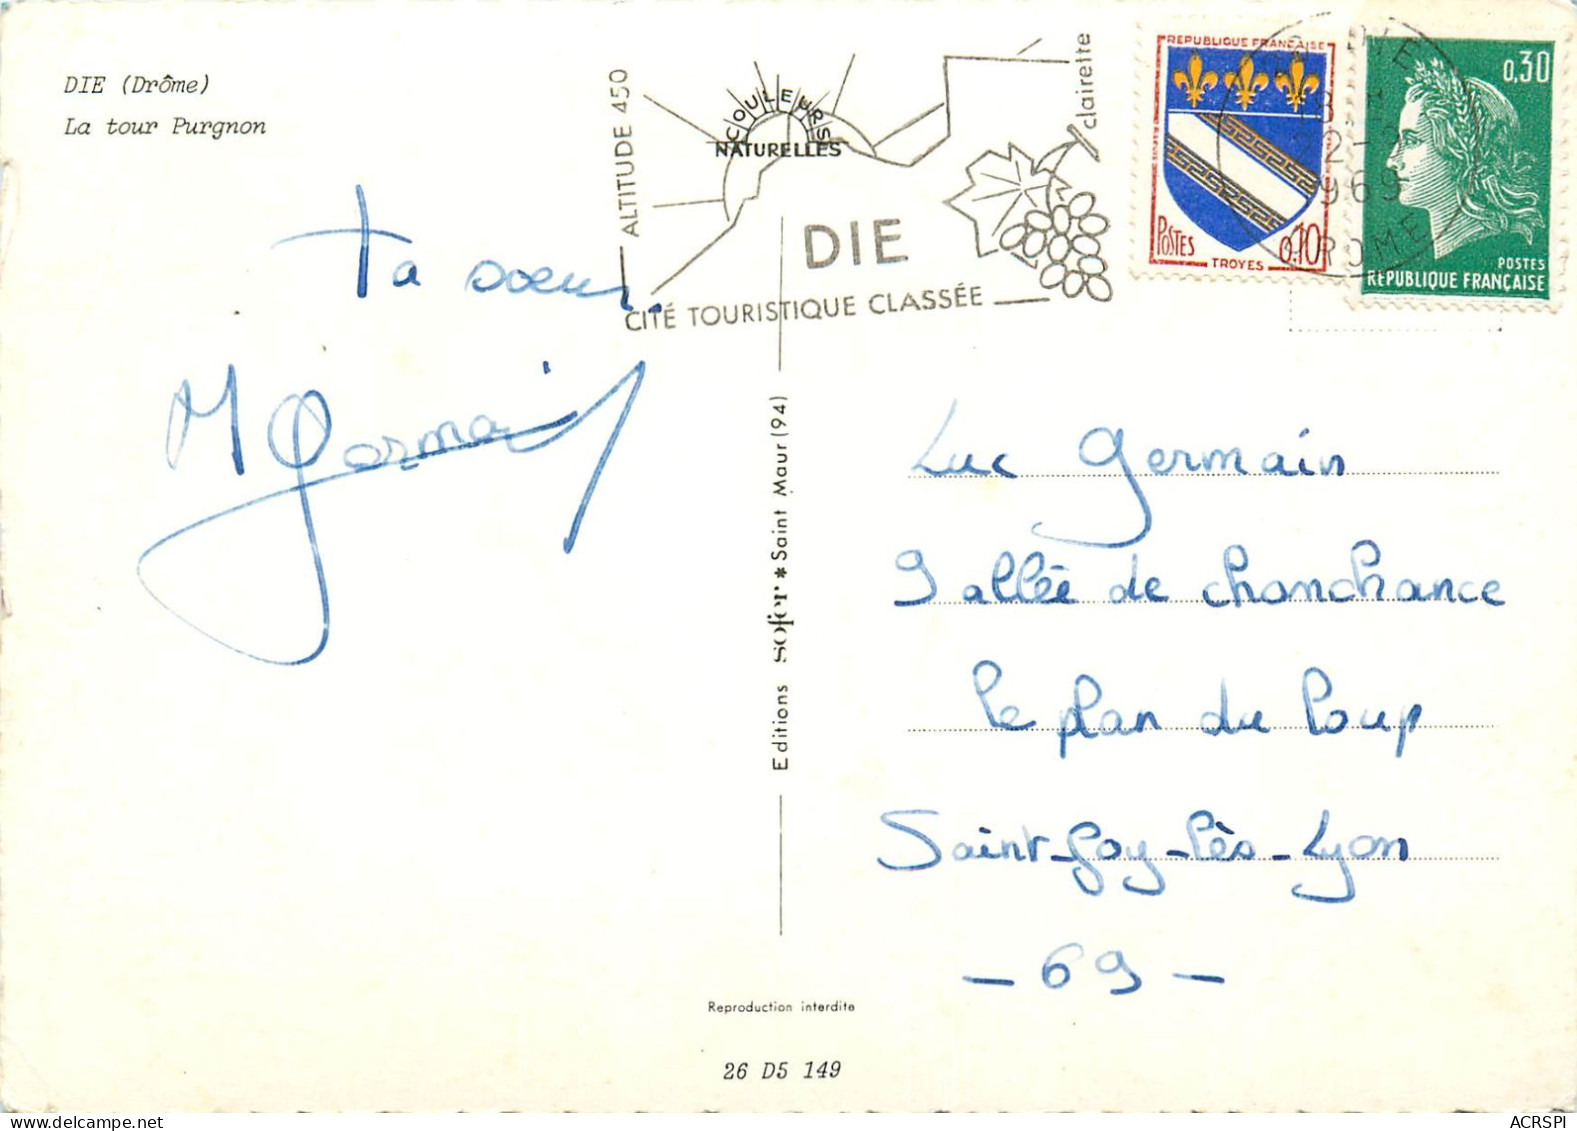 DIE (Drôme)
La tour Purgnon
Ta soeur
M Germain
ALTITUDE 450
COULEURS
NATURELLES
DIE
clairette
CITÉ TOURISTIQUE CLASSÉE
REPUBLIQUE FRANÇAISE
POSTES
0,10
TROYES
DIE
1969
DROME
0,30
POSTES
REPUBLIQUE FRANÇAISE
Editions sofer * Saint Maur (94)
Luc Germain
9 allée de chanchance
le plan du loup
Saint-foy-lès-Lyon
- 69 -
Reproduction interdite
26 D5 149
ACRSPI